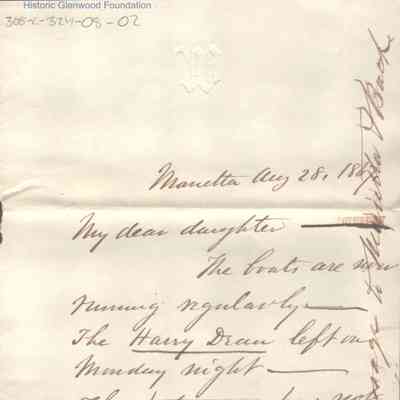 Historic Glenwood Foundation
305-2-324-08-02
W
Marietta Aug 28, 186
My dear daughter
The boats are now
running regularly—
The Harry Dean left on
Monday night—
to
& Back